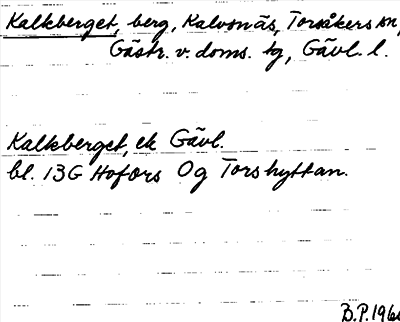 Kalkberget, berg, Kalvsnäs, Torsåkers sn,
Gästr. v. doms. tg, Gävl. l.
Kalkberget, ek Gävl.
bl. 13G Hofors 0g Torshyttan.
B.P.196